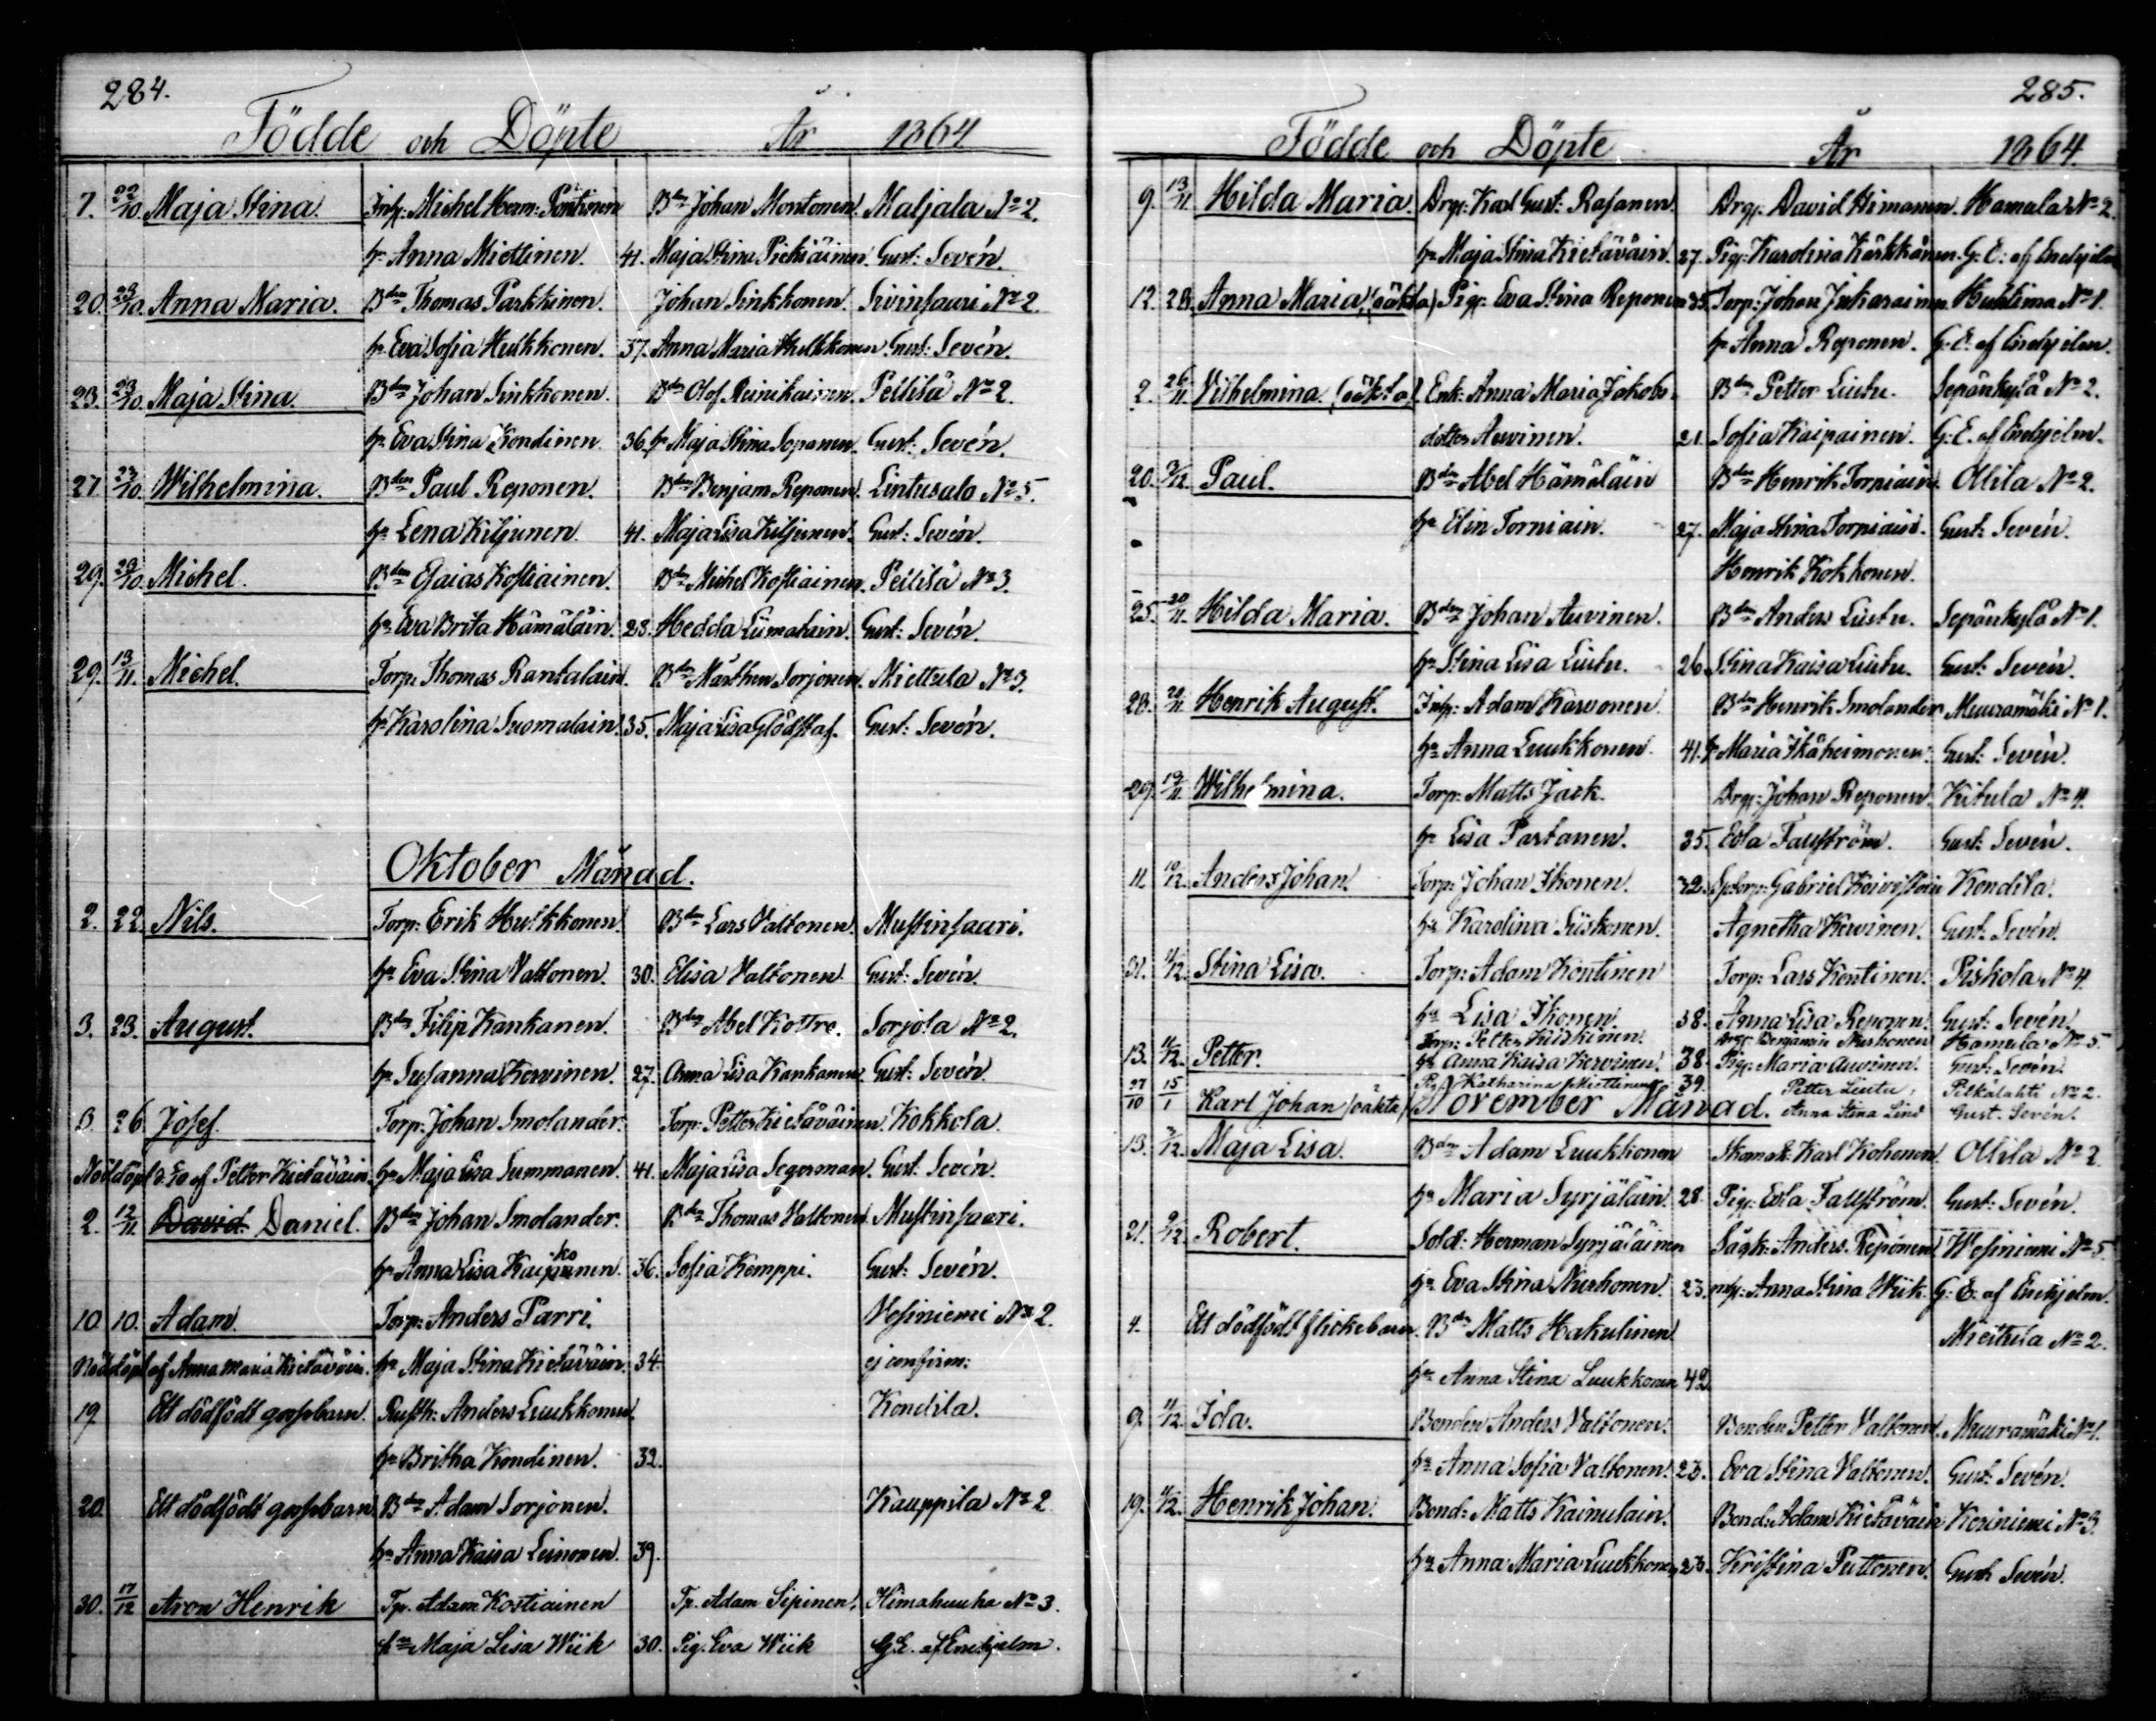 284.
Födde och Döpte År 1864
7. 22/10. Maja Stina. Inh: Michel Herm: Pöntinen Bdn Johan Montonen. Maljala No 2.
hu Anna Miettinen. 41. Maja Stina Pickiäinen. Gust: Sevén.
20. 23/10. Anna Maria. Bdn Thomas Parkkinen. Johan Sinkkonen. Sivinsaari No 2.
hu Eva Sofia Heikkonen. 37. Anna Maria Hulkkonen. Gust: Sevén.
23. 23/10. Maja Stina. Bdn Johan Sinkkonen. Bdn Olof Reinikainen. Pellilä No 2.
hu Eva Stina Kondinen 36. hu Maja Stina Sopanen. Gust: Sevén.
27 23/10. Wilhelmina. Bdn Paul Reponen. Bdn Benjam Reponen. Lintusalo No 5.
hu Lena Kiljunen. 41. Maja Lisa Kiljunen. Gust: Sevén.
29. 29/10. Michel. Bdn Esaias Kostiainen. Bdn Michel Kostiainen. Pellilä No 3.
hu Eva Brita Hämäläin. 28. Hedda Liimatain. Gust: Sevén.
29. 13/11. Michel. Torp: Thomas Rantalain. Bdn Mårthen Sorjonen. Miettula No 3.
hu Karolina Suomalain. 35. Maja Lisa Glödstaf. Gust: Sevén.
Oktober Månad.
2. 22. Nils. Torp: Erik Hulkkonen. Bdn Lars Valtonen. Mustinsaari.
hu Eva Stina Valtonen. 30. Elisa Valtonen Gust: Sevén.
3. 23. August. Bdn Filip Kankanen. Bdn Abel Kottre. Sorjola No 2.
hu Susanna Kervinen. 27. Anna Lisa Kankanen. Gust: Sevén.
8 26 Josef. Torp: Johan Smolander. Torp: Petter Kietäväinen. Kokkola.
Nöddöpt af Petter Kietäväin. hu Maja Lisa Summanen. 41. Maja Lisa Segerman. Gust: Sevén.
2. 12/11. David Daniel. Bdn Johan Smolander. Bdn Thomas Valtonen. Mustinsaari.
hu Anna Lisa Kaipanen. ko 36. Sofia Kemppi. Gust: Sevén.
10 10. Adam. Torp: Anders Parri. Vesiniemi No 2.
Nöddöpt af Anna Maria Kietäväin. hu Maja Stina Kietäväin. 34. ej confirm:
19 Ett dödfödt gossebarn. Rusth: Anders Luukkonen. Kondila.
hu Britha Kondinen. 32.
20. Ett dödfödt gossebarn. Bdn Adam Sorjonen. Kauppila No 2
hu Anna Kaisa Leinonen. 39.
30. 17/12 Aron Henrik Tp. Adam Kostiainen Tp. Adam Sipinen. Himahuuha No 3.
hu Maja Lisa Wiik 30. Pig. Eva Wiik G. E. af Enehjelm.
285.
Födde och Döpte År 1864.
9. 13/11. Hilda Maria. Drg: Karl Gust: Rasanen. Drg: David Himanen. Hamula No 2.
hu Maja Stina Kietäväin. 27. Pig: Karolina Kärkkänen. G. E: af Enehjelm
12. 28. Anna Maria, (oäkta) Pig: Eva Stina Reponen 35. Torp: Johan Jukarainen. Huhtima No 1.
hu Anna Reponen. G. E: af Enehjelm.
2. 26/11. Vilhelmina. (oäkta) Enk: Anna Maria Jakobs- Bdn Petter Liutu. Sepänkylä No 2.
dotter Auvinen. 21. Sofia Kaipainen. G: E. af Enehjelm.
20. 2/12. Paul. Bdn Abel Hämäläin Bdn Henrik Torniain. Ollila No 2.
hu Elin Torniain. 27. Maja Stina Torniain. Gust: Sevén.
Henrik Kokkonen.
25. 20/11. Hilda Maria. Bdn Johan Auvinen. Bdn Anders Liutu. Sepänkylä No 1.
hu Stina Lisa Liutu. 26 Stina Kaisa Liutu. Gust: Sevén.
28. 20/11. Henrik August. Inh: Adam Karvonen. Bdn Henrik Smolander Muuramäki No 1.
hu Anna Luukkonen. 41. hu Maria Ikäheimonen. Gust: Sevén.
29. 19/11. Wilhelmina. Torp: Matts Jack. Drg: Johan Reponen. Kitula No 4.
hu Lisa Partanen. 35. Evla Fallström. Gust: Sevén.
11. 10/12. Anders Johan. Torp: Johan Ikonen. 32. Gabriel Koivistoin Kondila.
hu Karolina Siiskonen. Agnetha Kervinen. Gust: Sevén.
31. 11/12. Stina Lisa. Torp: Adam Kontinen Torp: Lars Kontinen. Piskola No 4.
hu Lisa Ikonen. 38. Anna Lisa Reponen. Gust: Sevén.
13. 11/12. Petter. Torp: Petter Kiiskinen. Drg: Benjamin Nushonen Hamula No 5.
hu Anna Kaisa Kervinen. 38. Pig: Maria Auvinen. Gust: Sevén.
27/10 15/1 Karl Johan (oäkta) Pig: Katharina Miettinen 39. Petter Liutu, Pitkälahti No 2.
November Månad. Anna Stina Lind Gust. Sevén.
13. 3/12. Maja Lisa. Bdn Adam Luukkonen Skomak: Karl Kohonen. Ollila No 2.
hu Maria Syrjäläin. 28. Pig: Evla Fallström. Gust: Sevén.
21. 9/12. Robert. Sold: Herman Syrjäläinen Sågk: Anders Reponen Vesiniemi No 5.
hu Eva Stina Nushonen. 23. Anna Stina Wiik. G: E: af Enehjelm.
4. Ett dödfödt flickebarn. Bdn Matts Hakulinen Miettula No 2.
hu Anna Stina Luukkonen 42.
9. 11/12. Ida. Bonden Anders Valtonen. Bonden Petter Valtonen. Muuramäki No 1.
hu Anna Sofia Valtonen. 23. Eva Stina Valtonen. Gust: Sevén.
19. 11/12. Henrik Johan. Bond: Matts Kainulain. Bond: Adam Kietäväin Keriniemi No 3.
hu Anna Maria Luukkonen 23. Kristina Puttonen. Gust: Sevén.